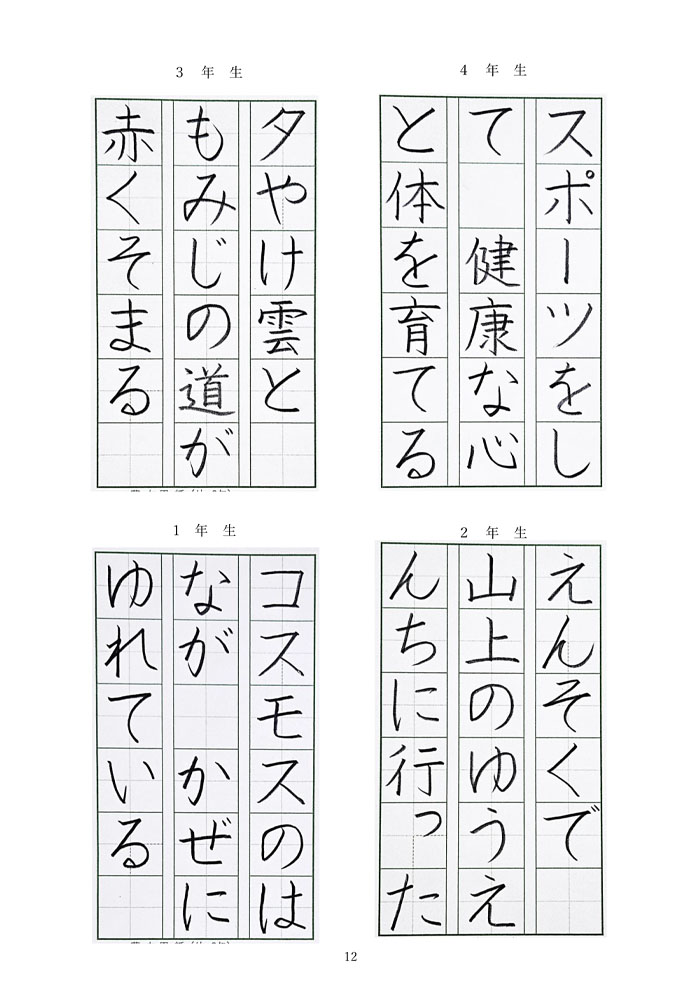 3 年 生
夕やけ雲と
もみじの道が
赤くそまる
4 年 生
スポーツをし
て　健康な心
と体を育てる
1 年 生
コスモスのは
なが　かぜに
ゆれている
2 年 生
えんそくで
山上のゆうえ
んちに行った
12